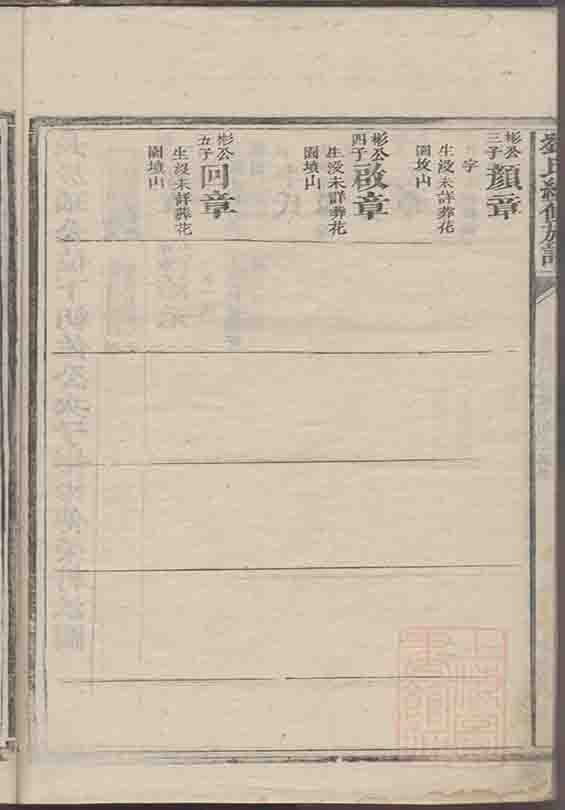 劉氏續修族譜
彬公三子 顏章
字
生沒未詳葬花
園坟山
彬公四子 啟章
生沒未詳葬花
園墳山
彬公五子 回章
生沒未詳葬花
園墳山